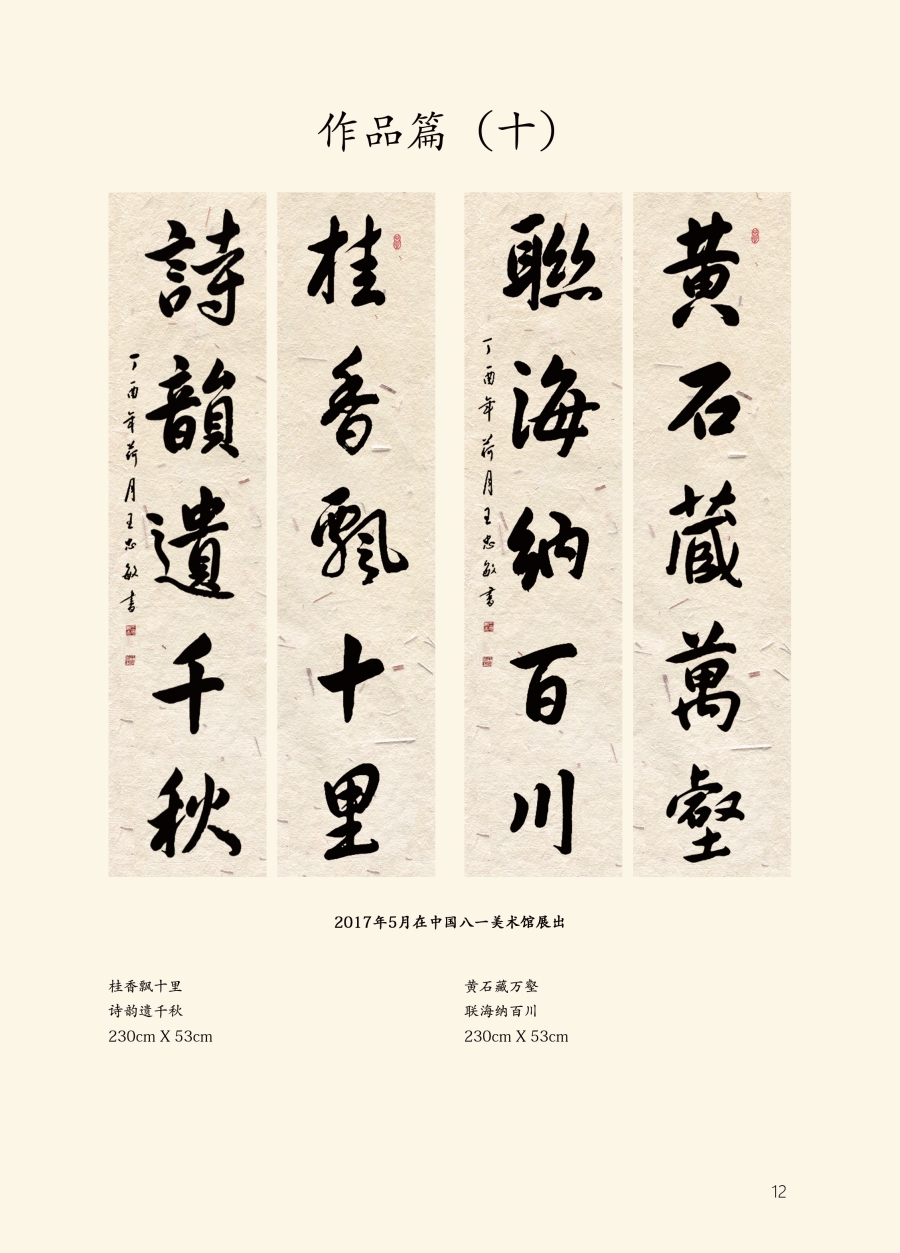 作品篇（十）
黄石藏萬壑
聯海纳百川
丁酉年荷月王忠敏书
桂香飘十里
詩韻遺千秋
丁酉年荷月王忠敏书
2017年5月在中国八一美术馆展出
桂香飘十里
诗韵遗千秋
230cm X 53cm
黄石藏万壑
联海纳百川
230cm X 53cm
12